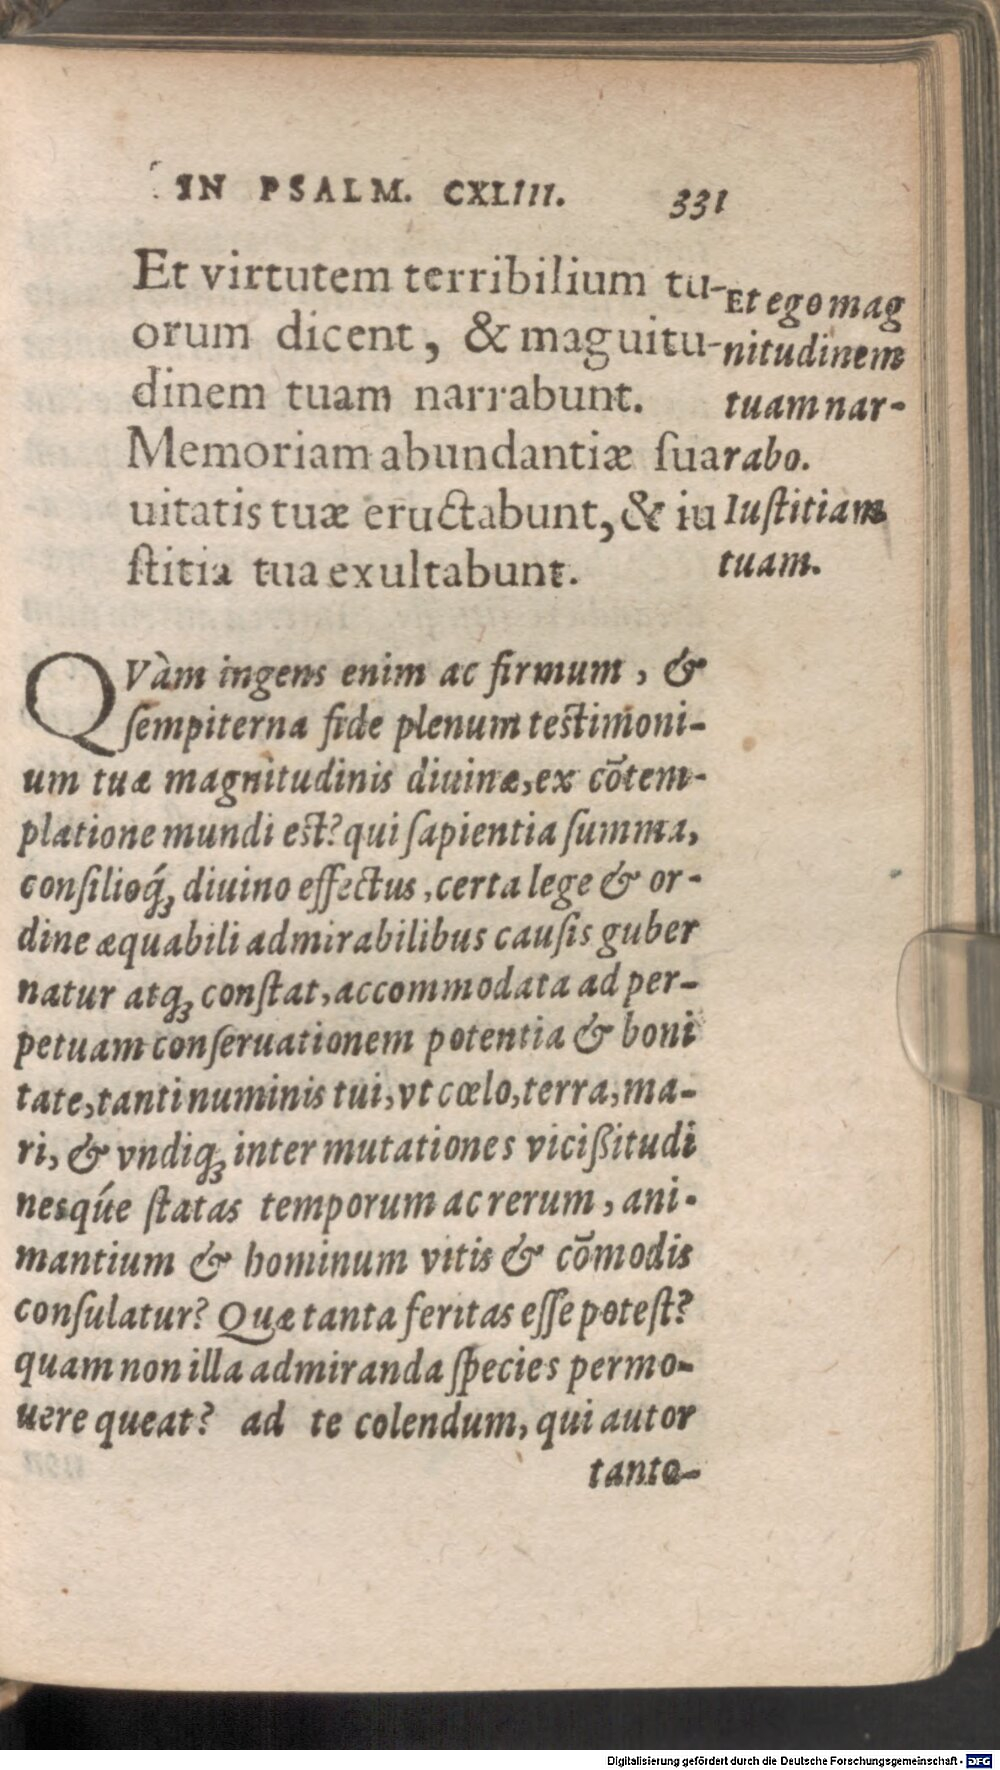 IN PSALM. CXLIII. 331
Et virtutem terribilium tu-
orum dicent, & maguitu-
dinem tuam narrabunt.
Memoriam abundantiæ ſua
uitatis tuæ eructabunt, & iu
ſtitia tua exultabunt.
Et ego mag
nitudinem
tuam nar-
rabo.
Iuſtitiam
tuam.
QVàm ingens enim ac firmum, &
ſempiterna fide plenum teſtimoni-
um tuæ magnitudinis diuinæ, ex cõtem-
platione mundi eſt? qui ſapientia ſumma,
conſilioq́ꝫ diuino effectus, certa lege & or-
dine æquabili admirabilibus cauſis guber
natur atqꝫ conſtat, accommodata ad per-
petuam conſeruationem potentia & boni
tate, tanti numinis tui, vt cœlo, terra, ma-
ri, & vndiqꝫ inter mutationes vicißitudi
nesq́ue ſtatas temporum ac rerum, ani-
mantium & hominum vitis & cõmodis
conſulatur? Quæ tanta feritas eſſe poteſt?
quam non illa admiranda ſpecies permo-
uere queat? ad te colendum, qui autor
tanta-
Digitalisierung gefördert durch die Deutsche Forschungsgemeinschaft - DFG